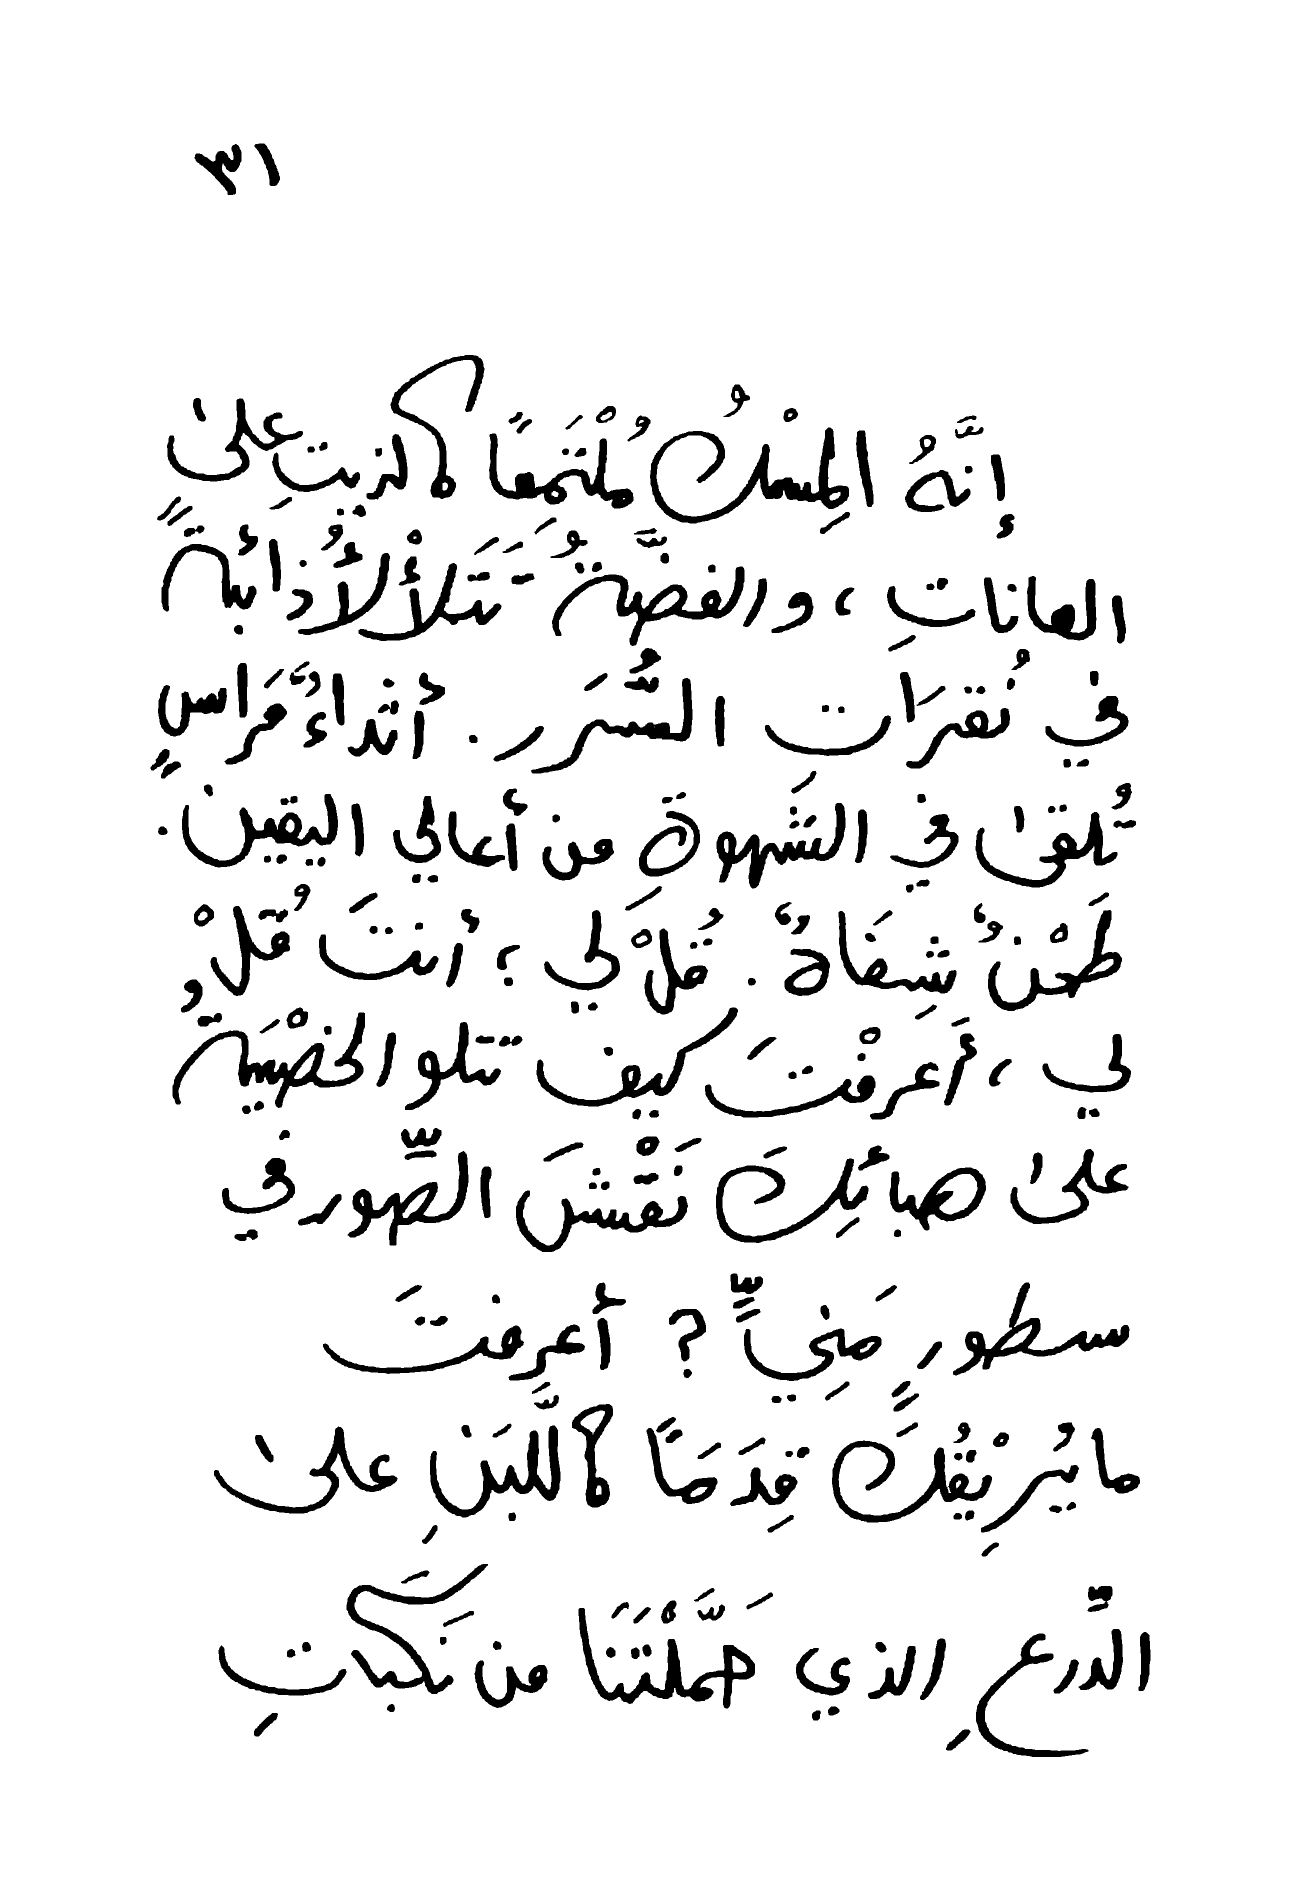 ٣١
إنَّهُ المِسْكُ مُلْتَمِعًا كالزيتِ على
العاناتِ ، والفضَّةُ تَتَلَألْأُ ذائبةً
في نُقرَات السُّرَر . أثداءٌ مَراسٍ
تُلقى في الشَهوةِ من أعالي اليقين .
طَحْنٌ شِفَاهٌ . قُلْ لي ؛ أنتَ قُلْ
لي ، أَعرفْتَ كيف تتلو الخصْيَةُ
على صبائِكَ نَقْشَ الصِّور في
سطورٍ مَنِيٍّ ? أعرِفتَ
ما يُرِيْقُكَ قِدَمًا كاللَّبَنِ على
الدِّرعِ الذي حَمَّلْتَنَا من نَكَباتِ